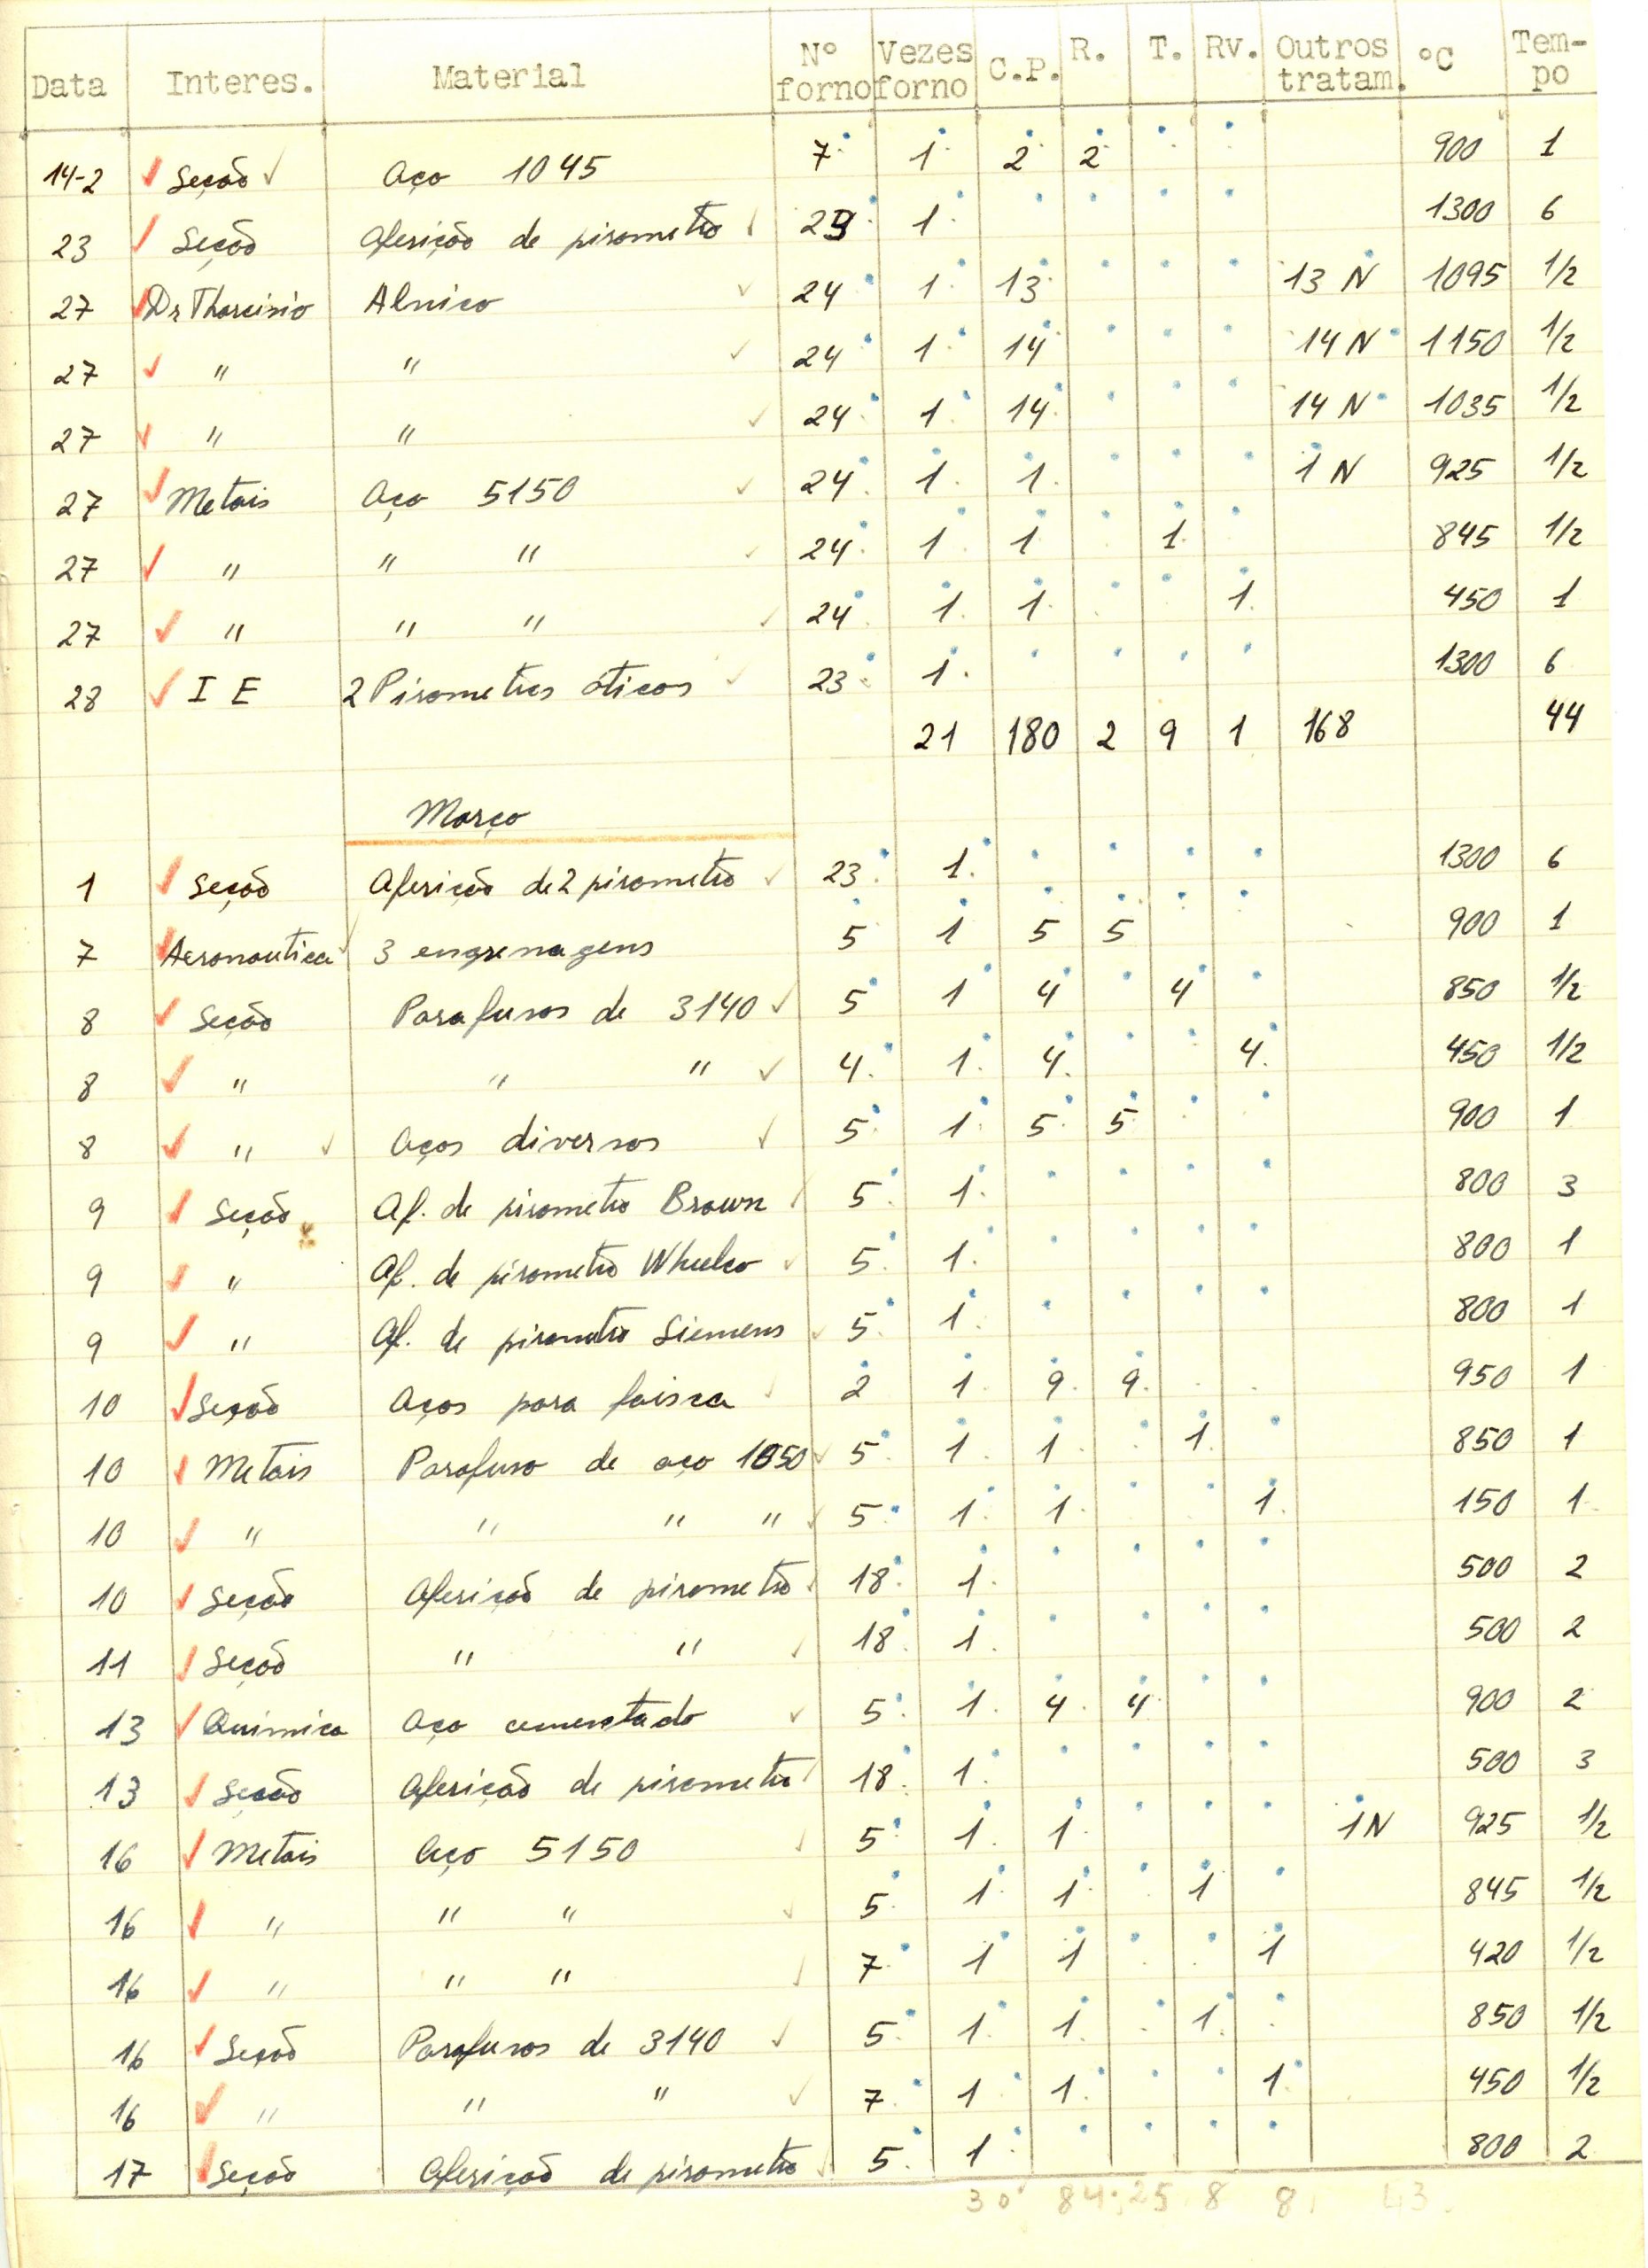 Data Interes. Material Nº forno Vezes forno C.P. R. T. Rv. Outros tratam. ºC Tem-po
14-2 Seção Aço 1045 7 1 2 2 900 1
23 Seção Aferição de pirometro 23 1 1300 6
27 Dr Tharcisio Alnico 24 1 13 13 N 1095 1/2
27 " " 24 1 14 14 N 1150 1/2
27 " " 24 1 14 14 N 1035 1/2
27 Metais Aço 5150 24 1 1 1 N 925 1/2
27 " " " 24 1 1 1 845 1/2
27 " " " 24 1 1 1 450 1
28 I E 2 Pirometros óticos 23 1 1300 6
21 180 2 9 1 168 44
Março
1 Seção Aferição de 2 pirometro 23 1 1300 6
7 Aeronautica 3 engrenagens 5 1 5 5 900 1
8 Seção Parafusos de 3140 5 1 4 4 850 1/2
8 " " " 4 1 4 4 450 1/2
8 " Aços diversos 5 1 5 5 900 1
9 Seção Af. de pirometro Brown 5 1 800 3
9 " Af. de pirometro Wheelco 5 1 800 1
9 " Af. de pirometro Siemens 5 1 800 1
10 Seção Aços para faisca 2 1 9 9 950 1
10 Metais Parafuso de aço 1050 5 1 1 1 850 1
10 " " " " 5 1 1 1 150 1
10 Seção Aferição de pirometro 18 1 500 2
11 Seção " " 18 1 500 2
13 Quimica Aço cementado 5 1 4 4 900 2
13 Seção Aferição de pirometro 18 1 500 3
16 Metais Aço 5150 5 1 1 1 N 925 1/2
16 " " " 5 1 1 1 845 1/2
16 " " " 7 1 1 1 420 1/2
16 Seção Parafusos de 3140 5 1 1 1 850 1/2
16 " " " 7 1 1 1 450 1/2
17 Seção Aferição de pirometro 5 1 800 2
30 84 25 8 8 43